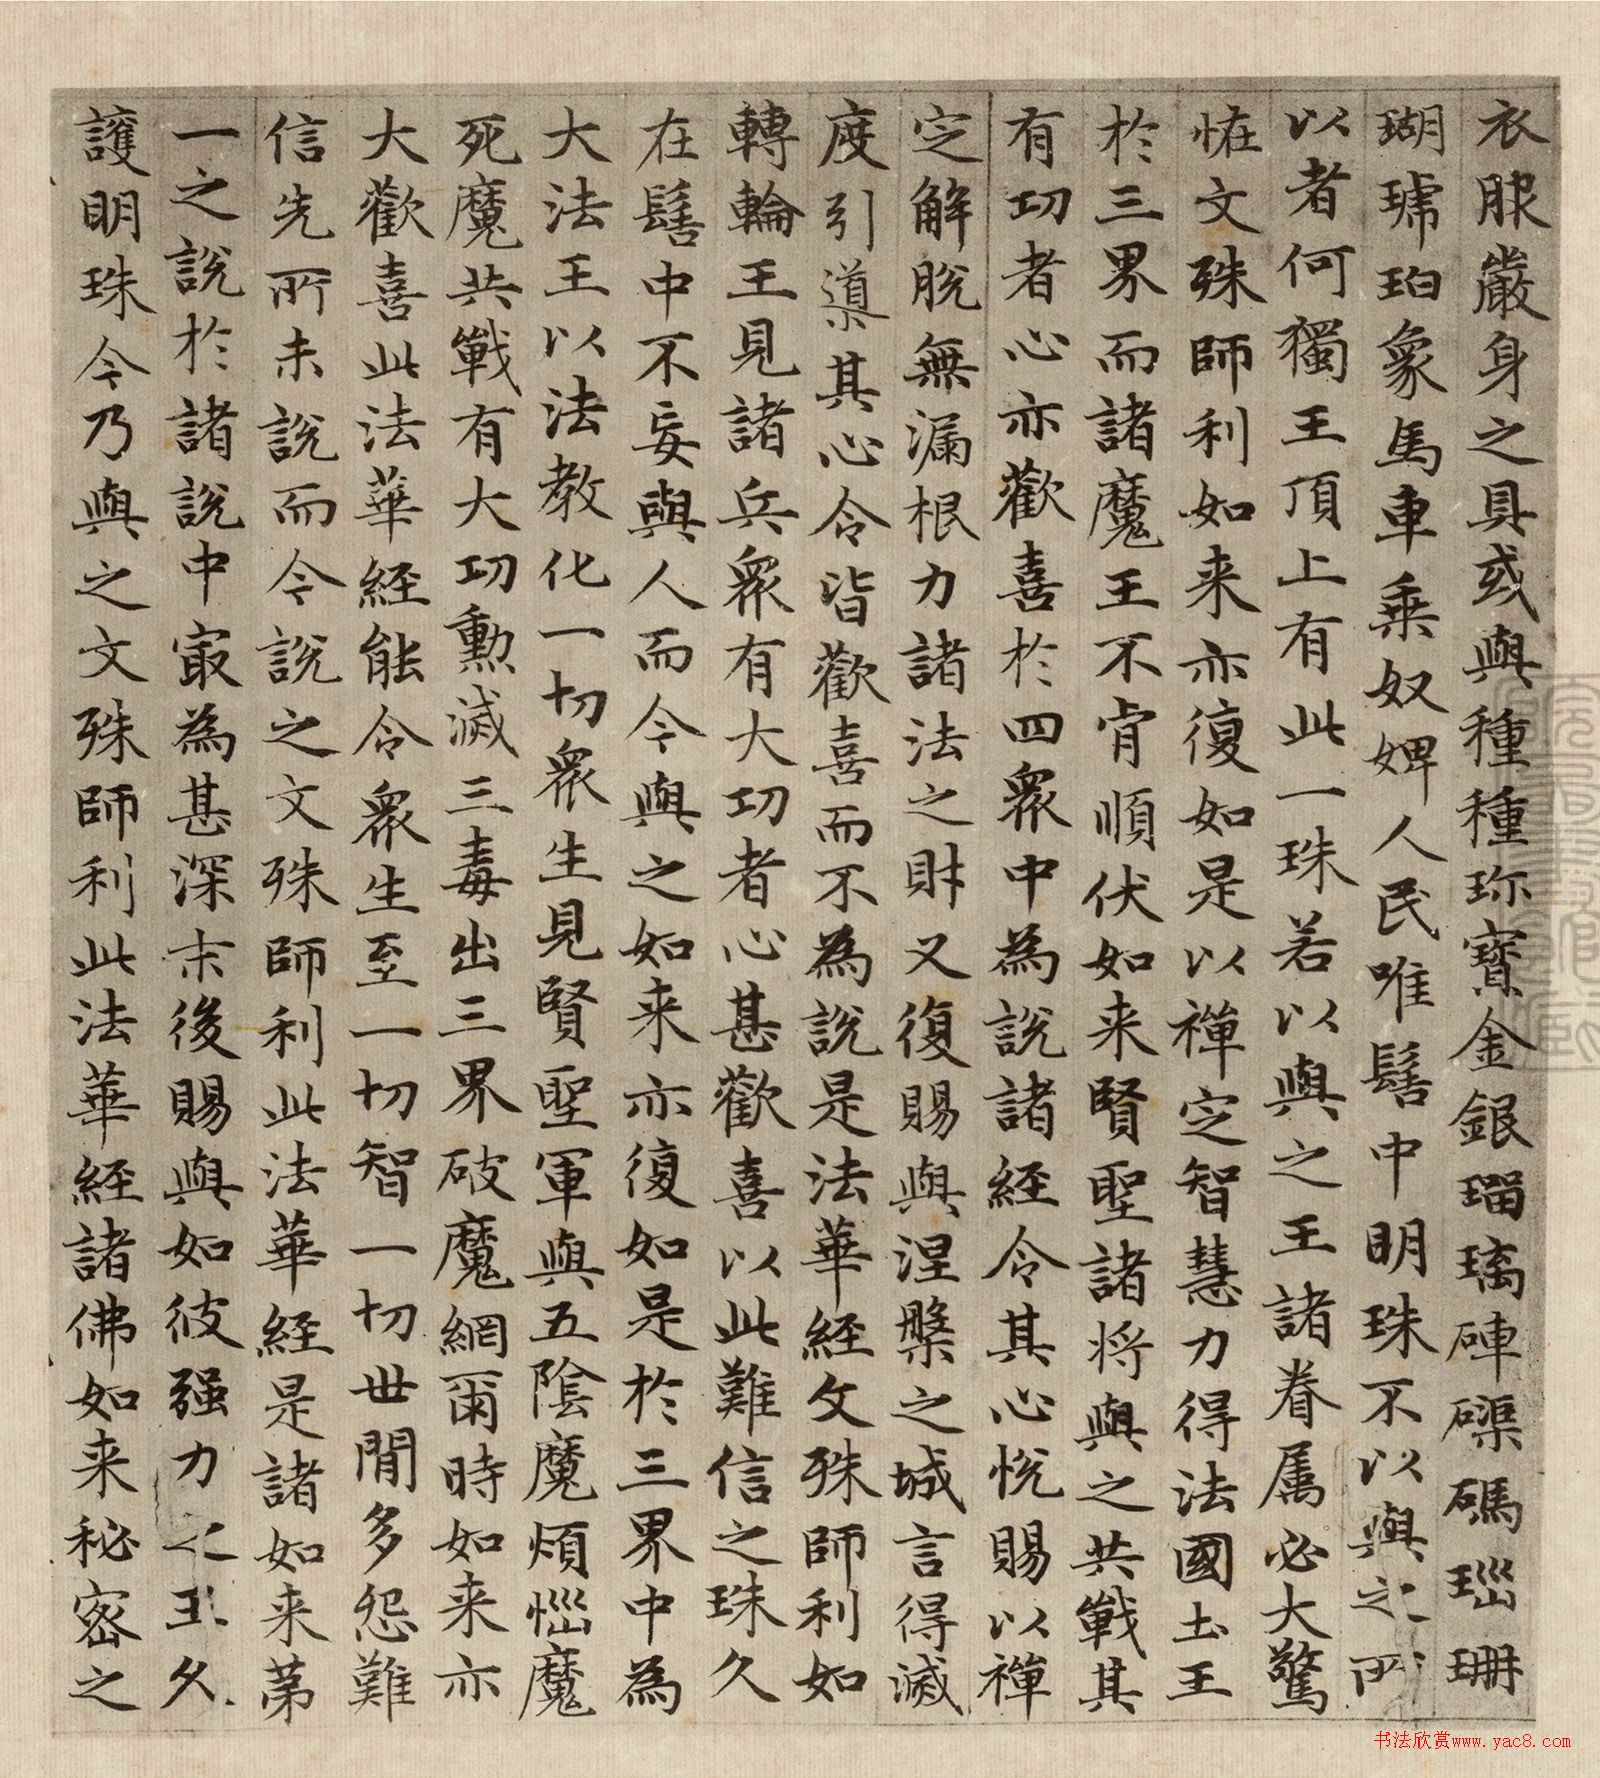 衣服嚴身之具或與種種珎寶金銀瑠璃硨磲碼瑙珊
瑚琥珀象馬車乗奴婢人民唯髻中明珠不以與之所
以者何獨王頂上有此一珠若以與之王諸眷属必大驚
恠文殊師利如来亦復如是以禪定智慧力得法國土王
於三界而諸魔王不肯順伏如来賢聖諸将與之共戰其
有功者心亦歡喜於四衆中為說諸経令其心悅賜以禪
定解脫無漏根力諸法之財又復賜與涅槃之城言得滅
度引導其心令皆歡喜而不為說是法華経文殊師利如
轉輪王見諸兵衆有大功者心甚歡喜以此難信之珠久
在髻中不妄與人而今與之如来亦復如是於三界中為
大法王以法教化一切衆生見賢聖軍與五陰魔煩惱魔
死魔共戰有大功勳滅三毒出三界破魔網爾時如来亦
大歡喜此法華経能令衆生至一切智一切世間多怨難
信先所未說而今說之文殊師利此法華経是諸如来第
一之說於諸說中寂為甚深末後賜與如彼强力之王久
護明珠今乃與之文殊師利此法華経諸佛如来秘密之
书法欣赏www.yac8.com